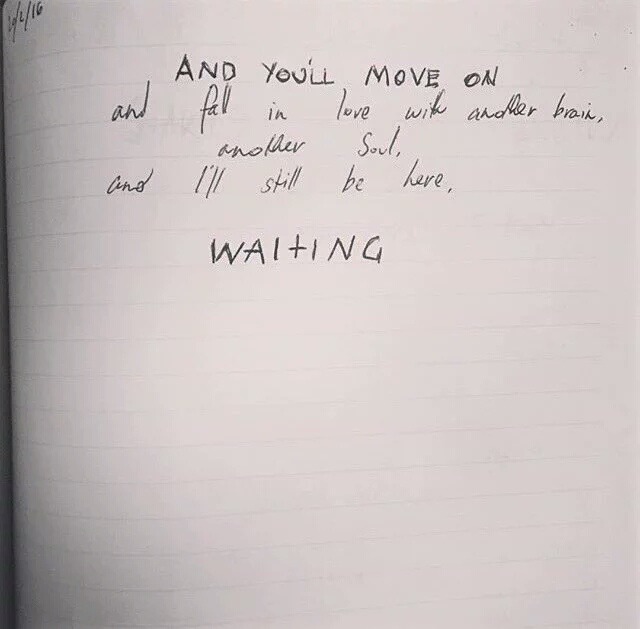 AND YOU'LL MOVE ON
and fall in love with another brain,
another Soul,
and I'll still be here,
WAITING